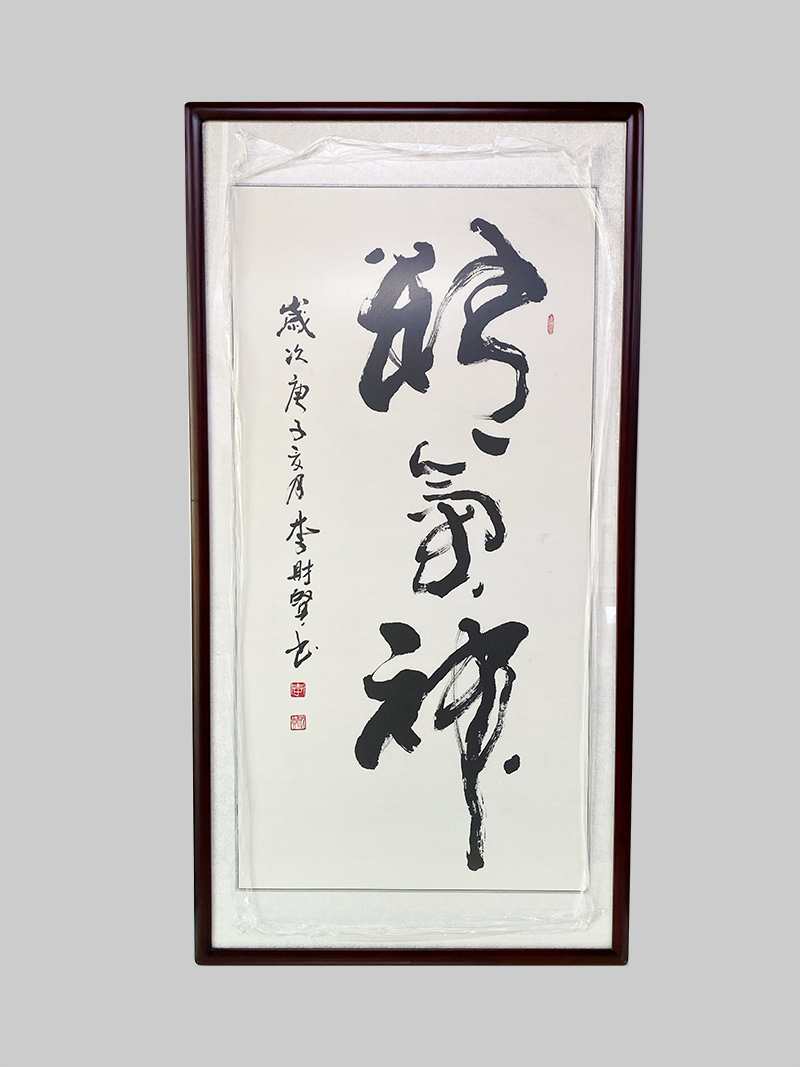 精氣神
歲次庚子亥月李財賢書